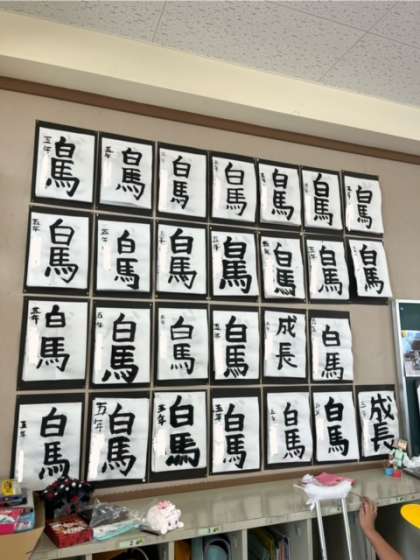 白馬
五年
白馬
五年
白馬
白馬
白馬
白馬
白馬
白馬
五年
白馬
五年
白馬
白馬
白馬
白馬
白馬
白馬
五年
白馬
五年
白馬
白馬
五年
成長
白馬
白馬
五年
白馬
五年
白馬
五年
白馬
五年
白馬
白馬
成長